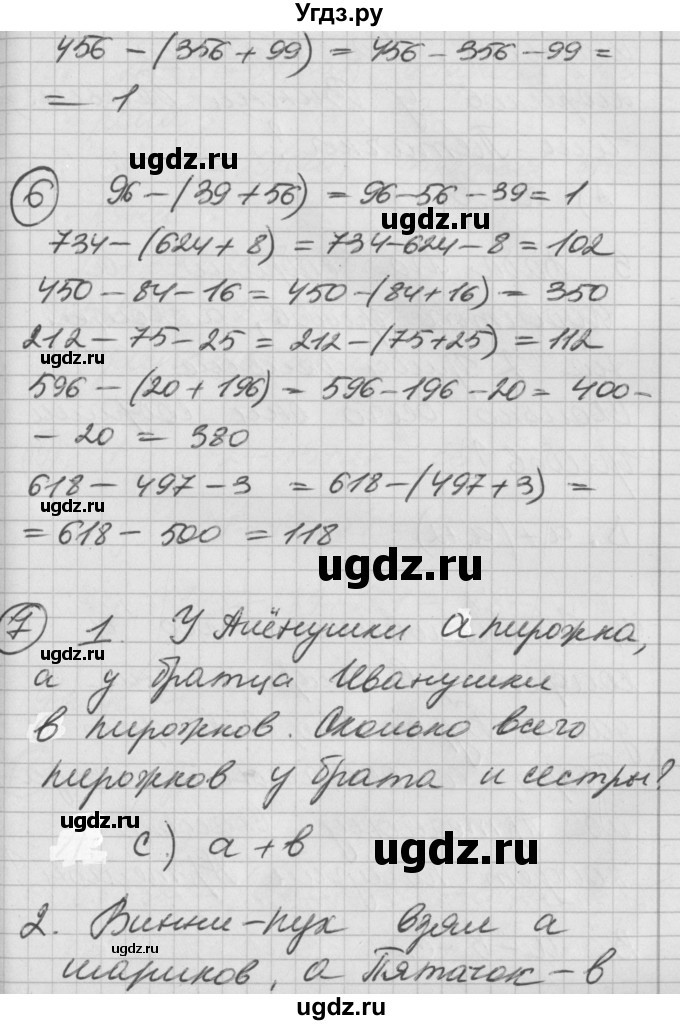 Угдз.ру
456 - (356 + 99) = 456 - 356 - 99 =
= 1
ugdz.ru
6 96 - (39 + 56) = 96 - 56 - 39 = 1
ugdz.ru
734 - (624 + 8) = 734 - 624 - 8 = 102
450 - 84 - 16 = 450 - (84 + 16) = 350
212 - 75 - 25 = 212 - (75 + 25) = 112
ugdz.ru
596 - (20 + 196) = 596 - 196 - 20 = 400 -
- 20 = 380
618 - 497 - 3 = 618 - (497 + 3) =
= 618 - 500 = 118
ugdz.ru
7 1. У Алёнушки а пирожка,
ugdz.ru
а у братца Иванушки
в пирожков. Сколько всего
пирожков у брата и сестры?
с) а + в
ugdz.ru
2. Винни-пух взял а
ugdz.ru
шариков, а Пятачок - в
ugdz.ru